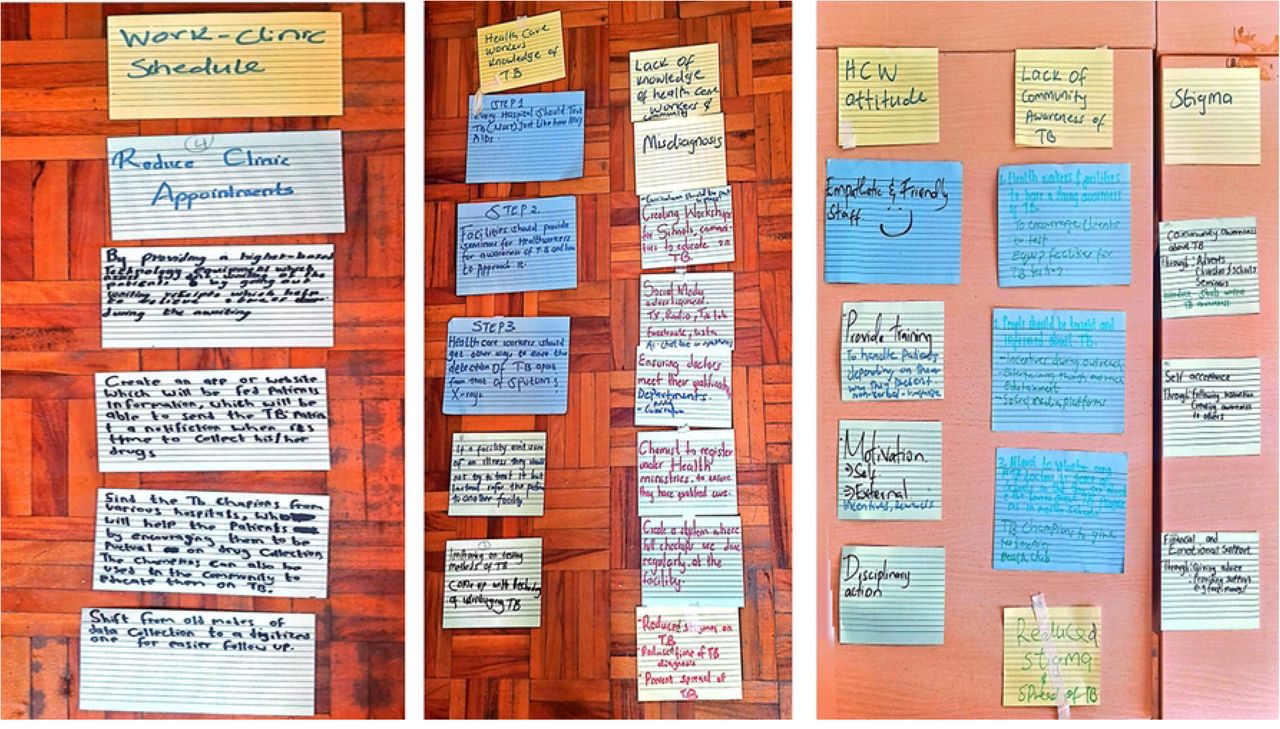 Work-clinic
Schedule
4
Reduce Clinic
Appointments
By providing a higher-based
Technology equipment which
patients & by going out
during the awaiting
Create an app or website
which will be fed patients
information, which will be
able to send the TB patien
t a notifiction when its
time to collect his/her
drugs
Sind the Tb champions from
various hospitals, who
will help the patients
by encouraging them to be
Puctual on drug collection
The champions can also be
used in the community to
educate them on TB.
Shift from old modes of
data collection to a digitized
one for easier follow up.
Health Care
workers
knowledge of
TB
STEP 1
Every Hospital Should Test
TB (Must) Just Like how HIV/
AIDs.
STEP 2.
Facilities should provide
seminars for Healthworkers
for awareness of TB and how
to Approch it.
STEP 3
Healthcare workers should
get other way to ease the
detection OF T.B apart
from that of Sputum &
X-rays
If a facility isnt sure
of an illness they should
not try to treat it but
instead refer the patient
to another facility
Improving on testing
methods of TB
Come up with technology
of identifying TB
Lack of
knowledge
of health care
workers &
community
Misdiagnosis
Creating Workshop
for Schools, commun-
ities to educate on
TB.
Social Media
advertisement,
TV, Radio, Tik tok
Facebook, Insta
Ensuring doctors
meet their qualificatn
Departments.
Chemist to register
under Health
ministries, to ensure
they have qualified care.
Create a system where
full checkups are done
regularly at the
facility.
Reduced stigma on
T.B
Reduce time of TB
diagnosis
Prevent spread of
T.B
HCW
attitude
Empathetic & Friendly
Staff
Provide training
To handle patients
depending on their
way they present
Motivation
→ Self
⇒ External
incentives, rewards
Disciplinary
action
Lack of
Community
Awareness of
TB
1. Health workers & facilities
to have a strong awareness
of TB.
To encourage clients
to test
Equip facilities for
TB testing.
2. People should be taught and
informed about TB.
- Incentives during outreach
- Social media platforms
TB Champions to give
testimony
Health Club
Reduced
Stigma
&
Spread of TB
Stigma
Community awareness
about TB
Through: Adverts
Churches & schools
Seminars
Self acceptance
Through: Following instruction
Creating awareness
to others
Financial and
Emotional Support
Through: Giving advice
providing support